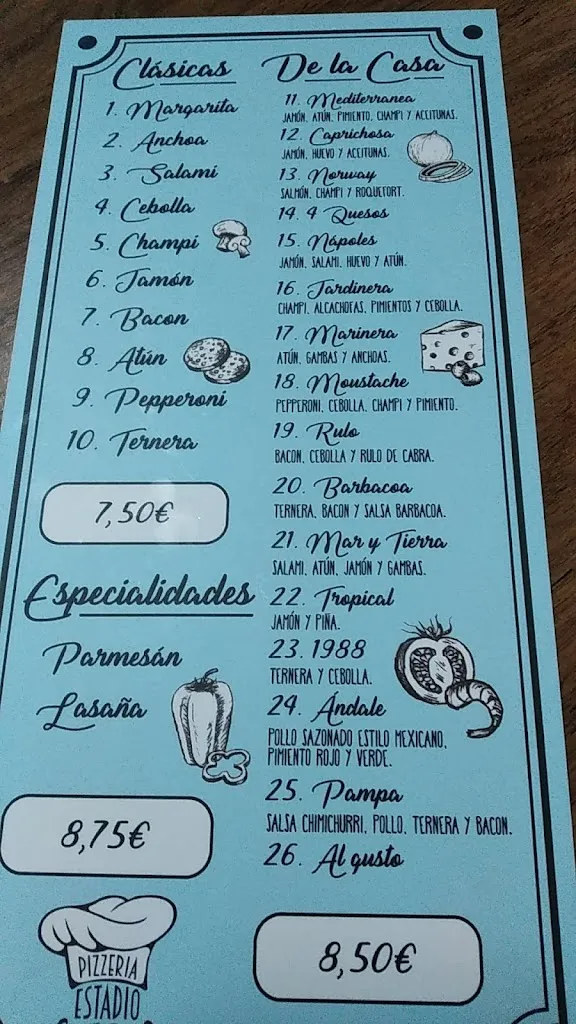 Clásicas
1. Margarita
2. Anchoa
3. Salami
4. Cebolla
5. Champi
6. Jamón
7. Bacon
8. Atún
9. Pepperoni
10. Ternera
7,50€
Especialidades
Parmesán
Lasaña
8,75€
PIZZERIA
ESTADIO
De la Casa
11. Mediterranea
JAMÓN, ATÚN, PIMIENTO, CHAMPI Y ACEITUNAS.
12. Caprichosa
JAMÓN, HUEVO Y ACEITUNAS.
13. Norway
SALMÓN, CHAMPI Y ROQUEFORT.
14. 4 Quesos
15. Nápoles
JAMÓN, SALAMI, HUEVO Y ATÚN.
16. Jardinera
CHAMPI, ALCACHOFAS, PIMIENTOS Y CEBOLLA.
17. Marinera
ATÚN, GAMBAS Y ANCHOAS.
18. Moustache
PEPPERONI, CEBOLLA, CHAMPI Y PIMIENTO.
19. Rulo
BACON, CEBOLLA Y RULO DE CABRA.
20. Barbacoa
TERNERA, BACON Y SALSA BARBACOA.
21. Mar y Tierra
SALAMI, ATÚN, JAMÓN Y GAMBAS.
22. Tropical
JAMÓN Y PIÑA.
23. 1988
TERNERA Y CEBOLLA.
24. Ándale
POLLO SAZONADO ESTILO MEXICANO,
PIMIENTO ROJO Y VERDE.
25. Pampa
SALSA CHIMICHURRI, POLLO, TERNERA Y BACON.
26. Al gusto
8,50€